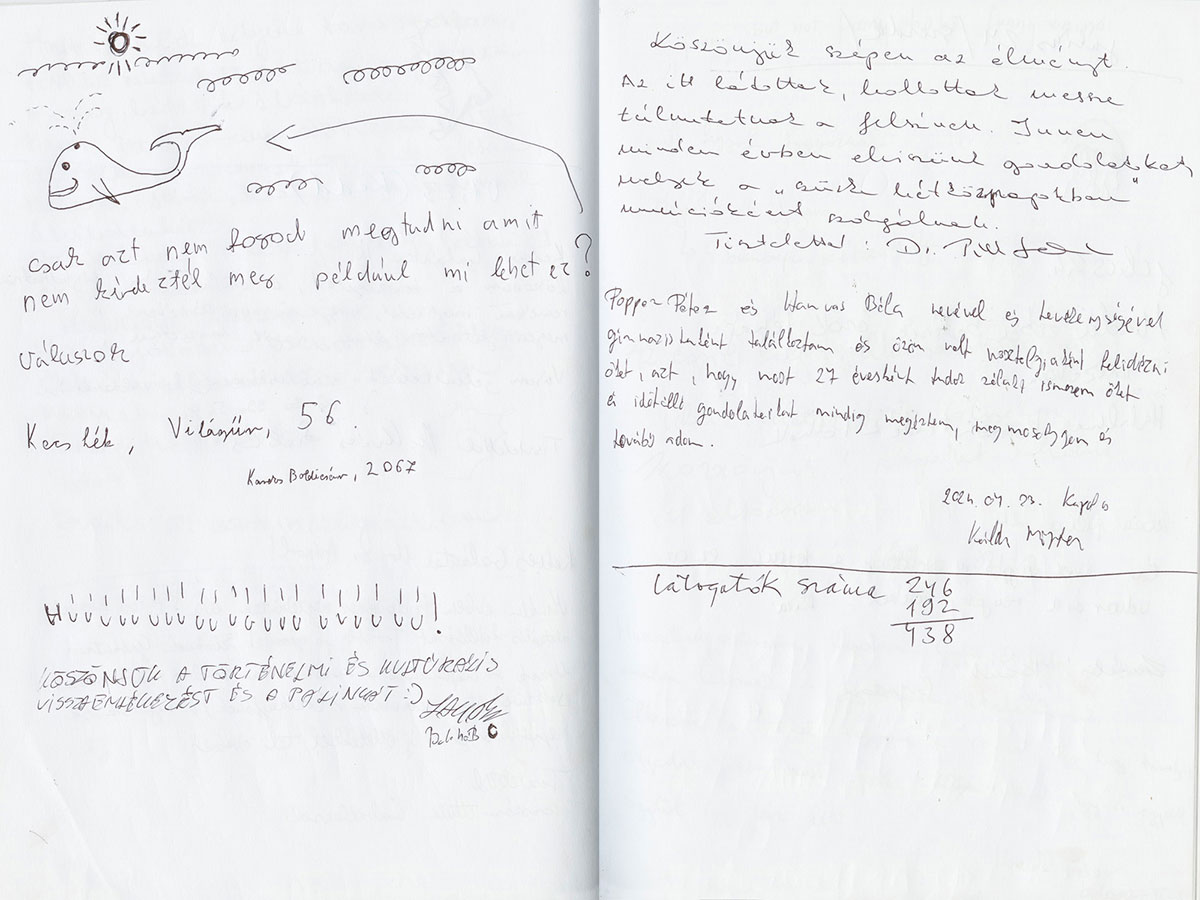 csak azt nem fogod megtudni amit
nem kérdeztél meg például mi lehet ez?
válaszok
Kecskék, Világűr, 56.
Boldizsár, 2067
HŰŰŰŰŰŰŰŰŰŰŰŰŰŰŰ!
KÖSZÖNJÜK A TÖRTÉNELMI ÉS KULTÚRÁLIS
VISSZAEMLÉKEZÉST ÉS A PÁLINKÁT :)
Köszönjük szépen az élményt.
Az itt látottak, hallottak messze
túlmutatnak a felszínen. Innen
minden évben elviszünk gondolatokat
melyek a "szürke hétköznapokban"
munícióként szolgálnak.
Tisztelettel: Dr.
Popper Péter és Hamvas Béla nevével és tevékenységével
gimnazistaként találkoztam és öröm volt nosztalgiaként felidézni
őket, azt, hogy most 27 évesként tudok ismerem őket
és időtálló gondolataikat mindig megéltem, megmosolygom és
tovább adom.
2024. 07. 23. Kapolcs
Látogatók száma 246
192
438